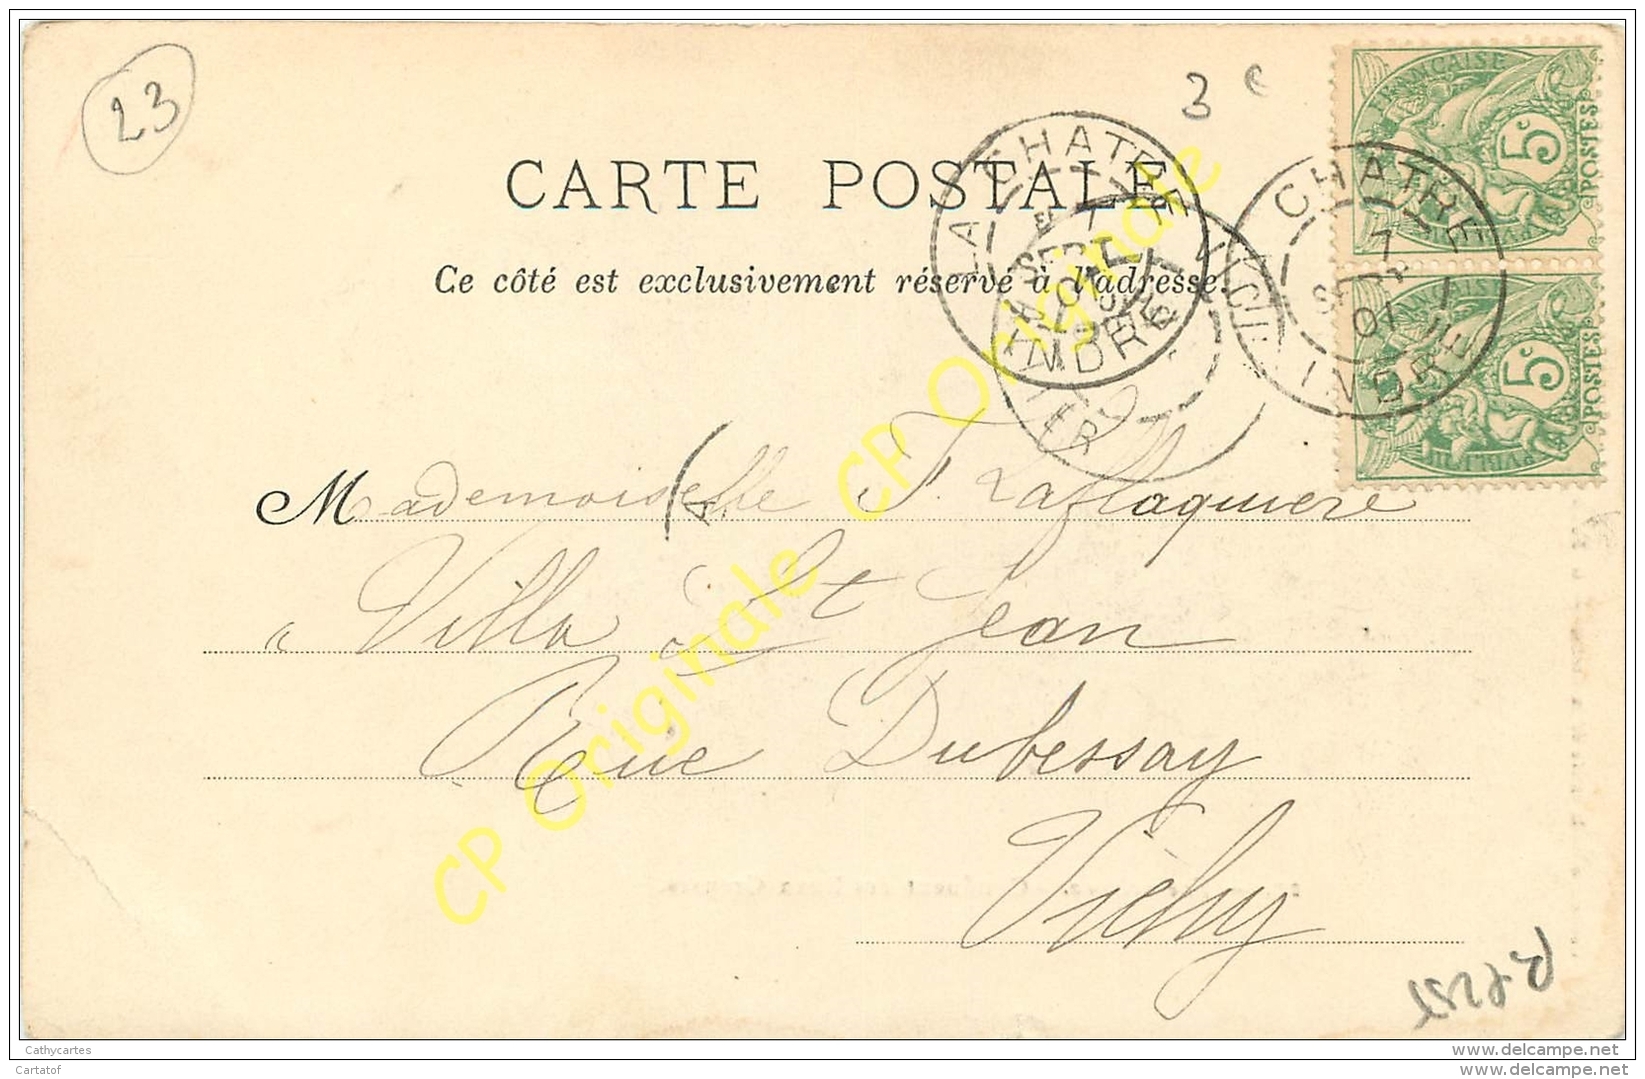 23
3 c
FRANÇAISE
5c POSTES
CARTE POSTALE
LA CHATRE
7
SEPT
01
INDRE
CHATRE
7
01
INDRE
Ce côté est exclusivement réservé à l'adresse.
5c POSTES
Mademoiselle J. Laflaquiere
Villa St Jean
Rue Dubessay
Vichy
CP Originale CP Originale
Cathycartes
Cartatof
www.delcampe.net
www.delcampe.net